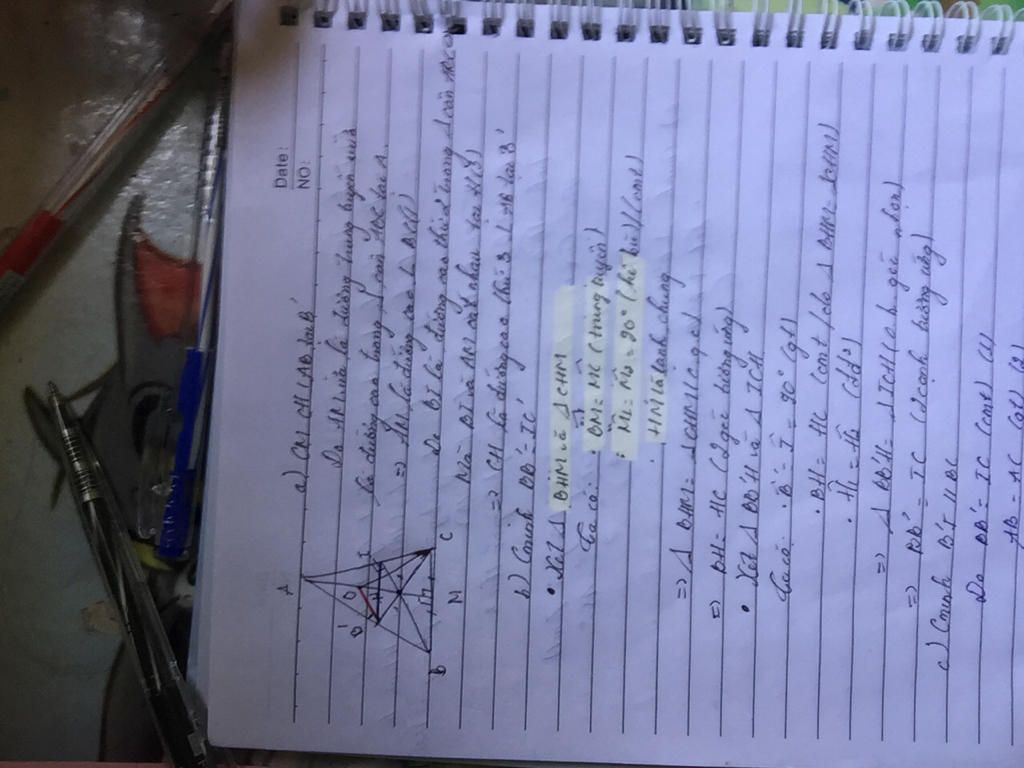 Date:
NO:
a) CM CH ⊥ AB tại B'
Do AM vừa là đường trung tuyến vừa
là đường cao trong Δ cân ABC tại A
=> AM là đường cao
Do BI là đường cao thứ 2 trong Δ cân ABC
Mà BI và AM cắt nhau tại H
=> CH là đường cao thứ 3 ⊥ AB tại B'
b) Cminh BB' = IC
• Xét Δ BHM và Δ CHM
Ta có: • BM = MC (trung tuyến)
• M̂1 = M̂2 = 90° (cmt)
• HM là cạnh chung
=> Δ BHM = Δ CHM (c.g.c)
=> BH = HC (2 góc tương ứng)
• Xét Δ BB'H và Δ ICH
Ta có: • B̂' = Î = 90° (gt)
• BH = HC (cmt / do Δ BHM = Δ CHM)
• Ĥ1 = Ĥ2 (đđ)
=> Δ BB'H = Δ ICH (c.h góc nhọn)
=> BB' = IC (2 cạnh tương ứng)
c) Cminh B'I // BC
Do BB' = IC (cmt) (1)
AB = AC (gt) (2)
A
B'
O
I
H
B
M
C